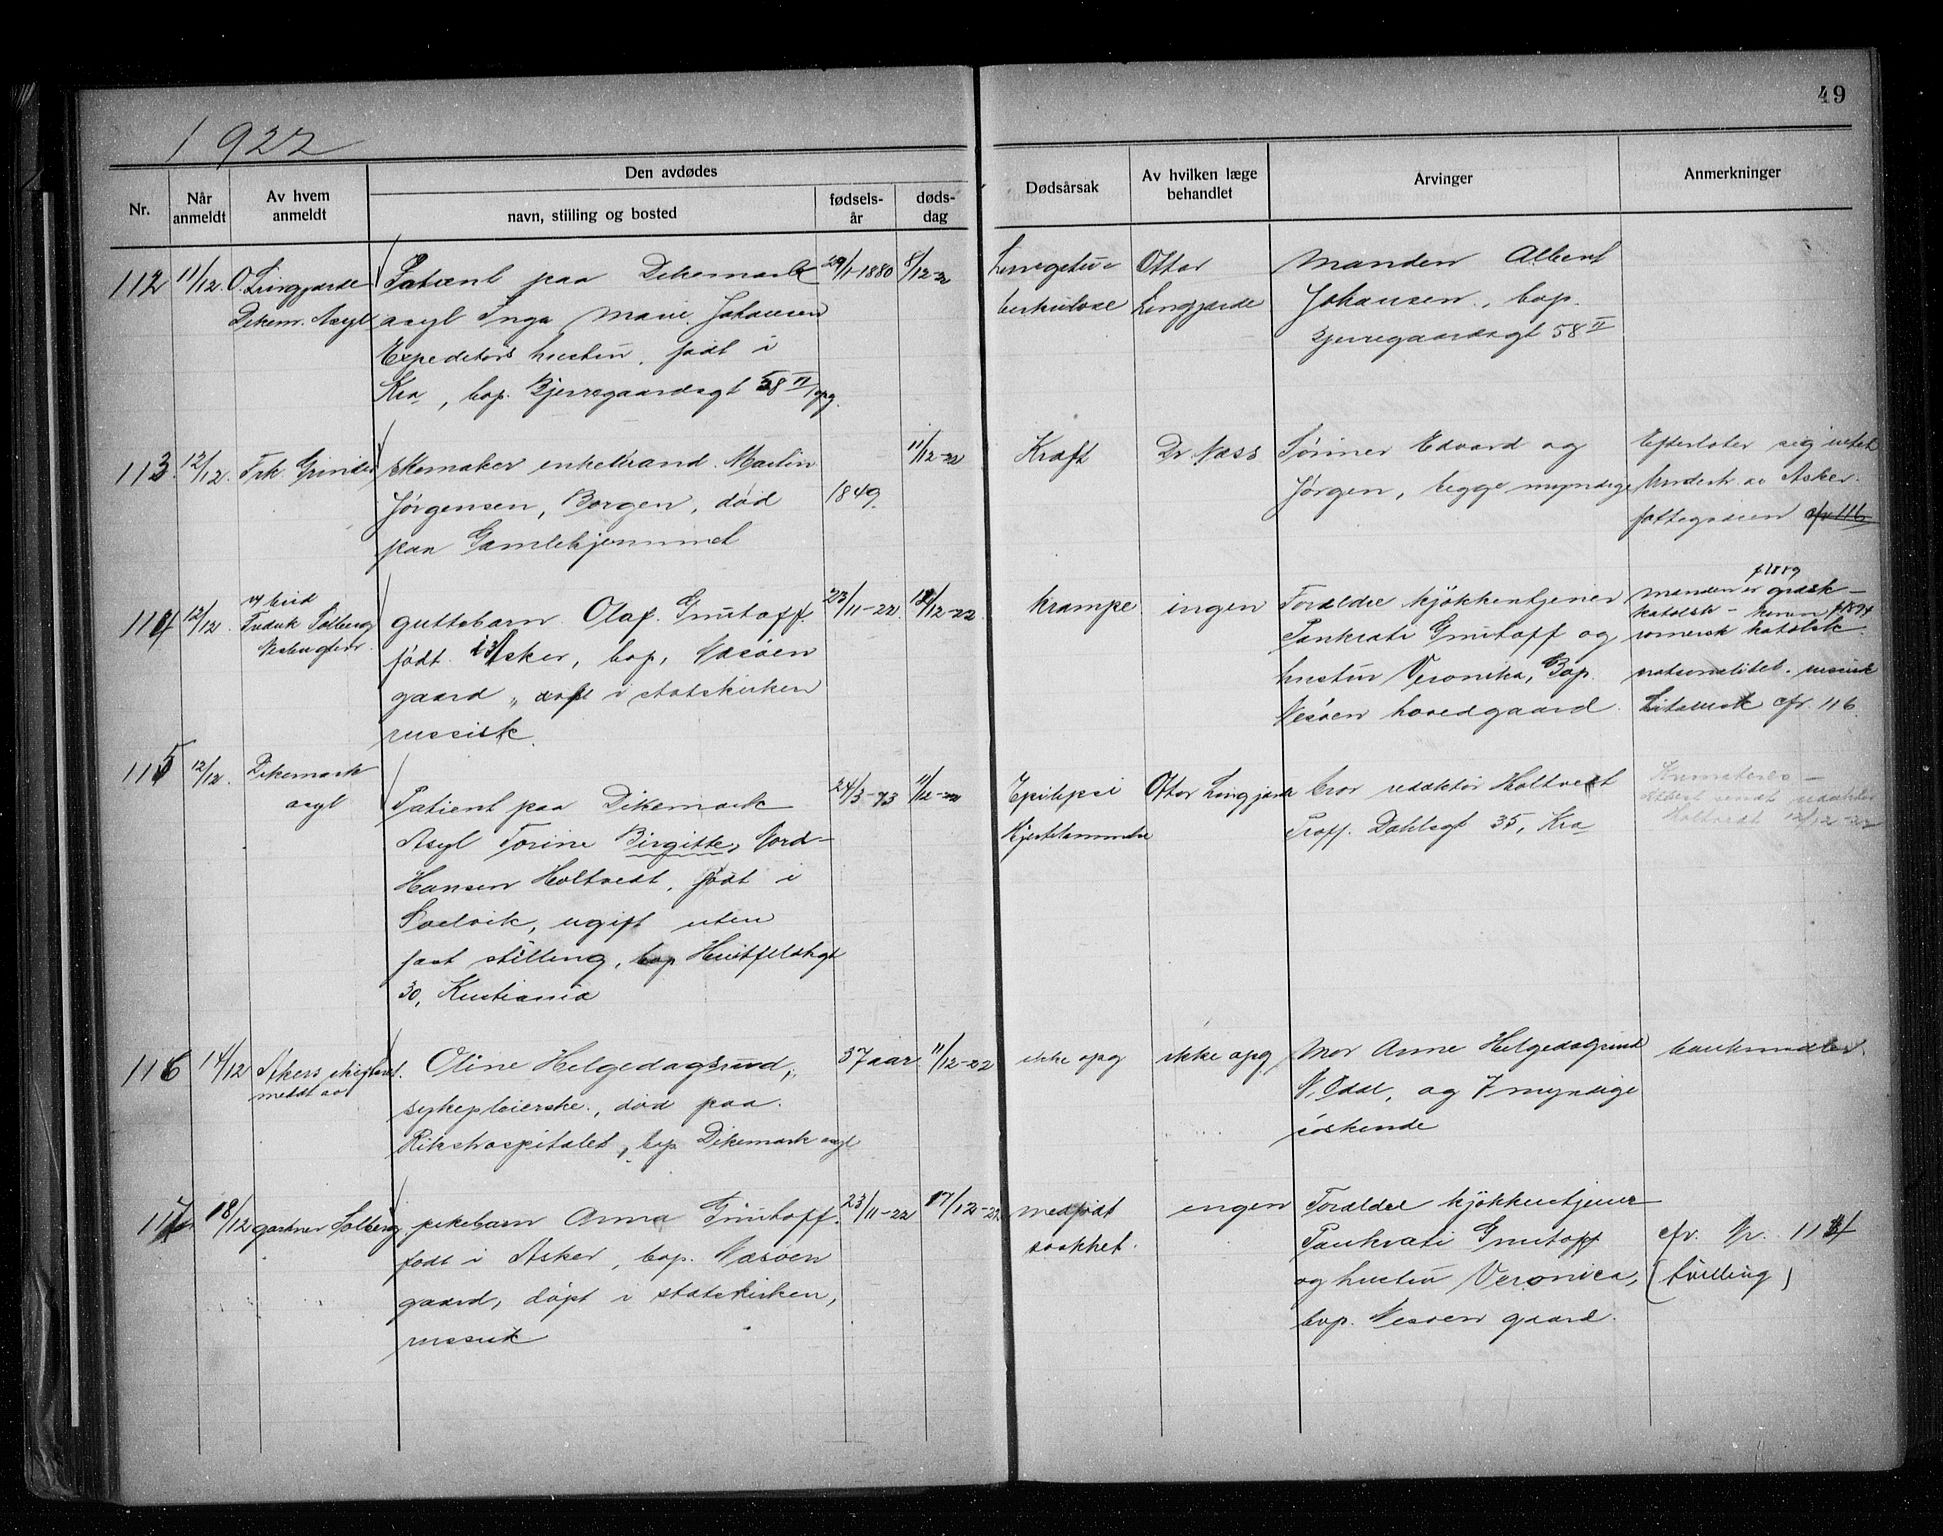 49
1922
Nr.
Når anmeldt
Av hvem anmeldt
Den avdødes
navn, stiiling og bosted
fødsels-år
døds-dag
Dødsårsak
Av hvilken læge behandlet
Arvinger
Anmerkninger
112 11/12 O. Lingjærde
Dikem. Asyl
Patient paa Dikemark
asyl Inga Marie Johansen
Expeditørs hustru, født i
Kra, bop. Bjerregaardsgt 58 II opg.
29/1-1880
8/12-22
Lungetu-
berkulose
Ottar
Lingjærde
Manden Albert
Johansen, bop.
Bjerregaardsgt 58 II
113 12/12 Frk. Grinder
skomaker enkemand Martin
Jørgensen, Borgen, død
paa Gamlehjemmet
1849
11/12-22
Kræft
Dr. Næss
Sønner Edvard og
Jørgen, begge myndige
Efterlater sig intet
Underst. av Asker
fattigvæsen cfr 116
114 12/12
v/ bud
Fredrik Solberg
guttebarn Olaf Gnutoff
født i Asker, bop. Næsøen
gaard, døpt i statskirken
russisk
23/11-22
12/12-22
krampe
ingen
Forældre kjøkkentjener
Pankrati Gnutoff og
hustru Veronika, Bop.
Nesøen hovedgaard
f 1889
manden er græsk-
katolsk - konen f 1894
romersk katolsk
nationalitet russisk
Litauisk cfr. 116
115 12/12 Dikemark
asyl
Patient paa Dikemark
Asyl Torine Birgitte Nord-
Hansen Holtvedt, født i
Svelvik, ugift uten
fast stilling, bop Huitfeldtsgt
30, Kristiania
24/3-73
11/12-22
Epilepsi
Hjertelammelse
Ottar Lingjærde
bror redaktør Holtvedt
Proff. Dahlsgt 35, Kra
Attest sendt redaktør
Holtvedt 12/12-22
116 14/12 Akers skifteret
meldt av
Oline Helgedagsrud,
sykepleierske, død paa
Rikshospitalet, bop Dikemark asyl
37 aar
11/12-22
ikke opg
ikke opg
Mor Anne Helgedagsrud
N. Odal, og 7 myndige
søskende
117 18/12 gartner Solberg
pikebarn Anna Gnutoff
født i Asker, bop. Næsøen
gaard, døpt i statskirken,
russisk
23/11-22
17/12-22
medfødt
svakhet
ingen
Forældre kjøkkentjener
Pankrati Gnutoff
og hustru Veronica,
bop. Nesøen gaard.
cfr. Nr. 114
(tvilling)